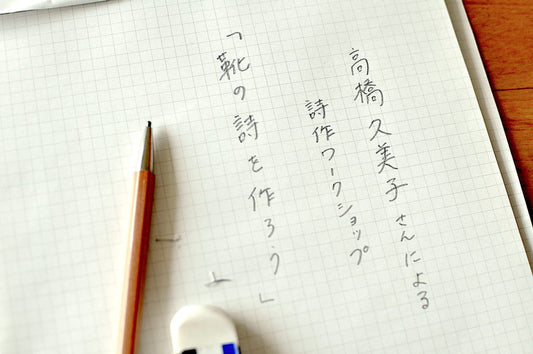 高橋久美子さんによる
詩作ワークショップ
「靴の詩を作ろう」